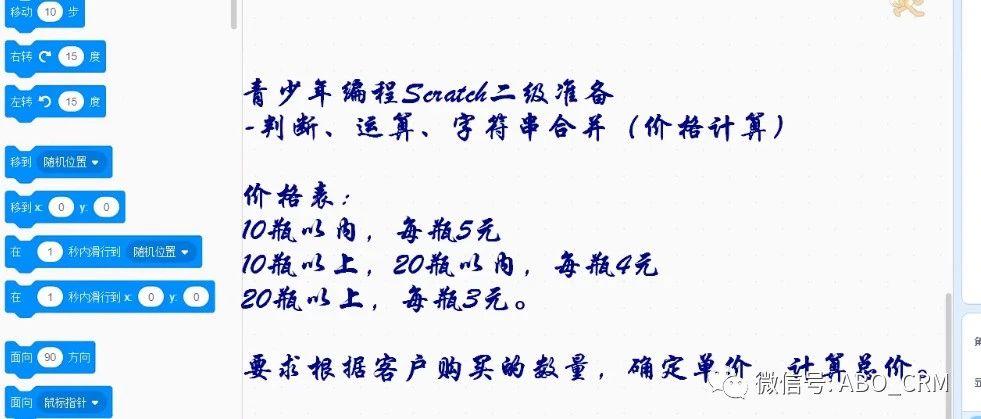 移动 10 步
右转 15 度
左转 15 度
移到 随机位置
移到 x: 0 y: 0
在 1 秒内滑行到 随机位置
在 1 秒内滑行到 x: 0 y: 0
面向 90 方向
面向 鼠标指针
青少年编程Scratch二级准备
-判断、运算、字符串合并（价格计算）
价格表：
10瓶以内，每瓶5元
10瓶以上，20瓶以内，每瓶4元
20瓶以上，每瓶3元。
要求根据客户购买的数量，确定单价 计算总价。
微信号:ABO_CRM